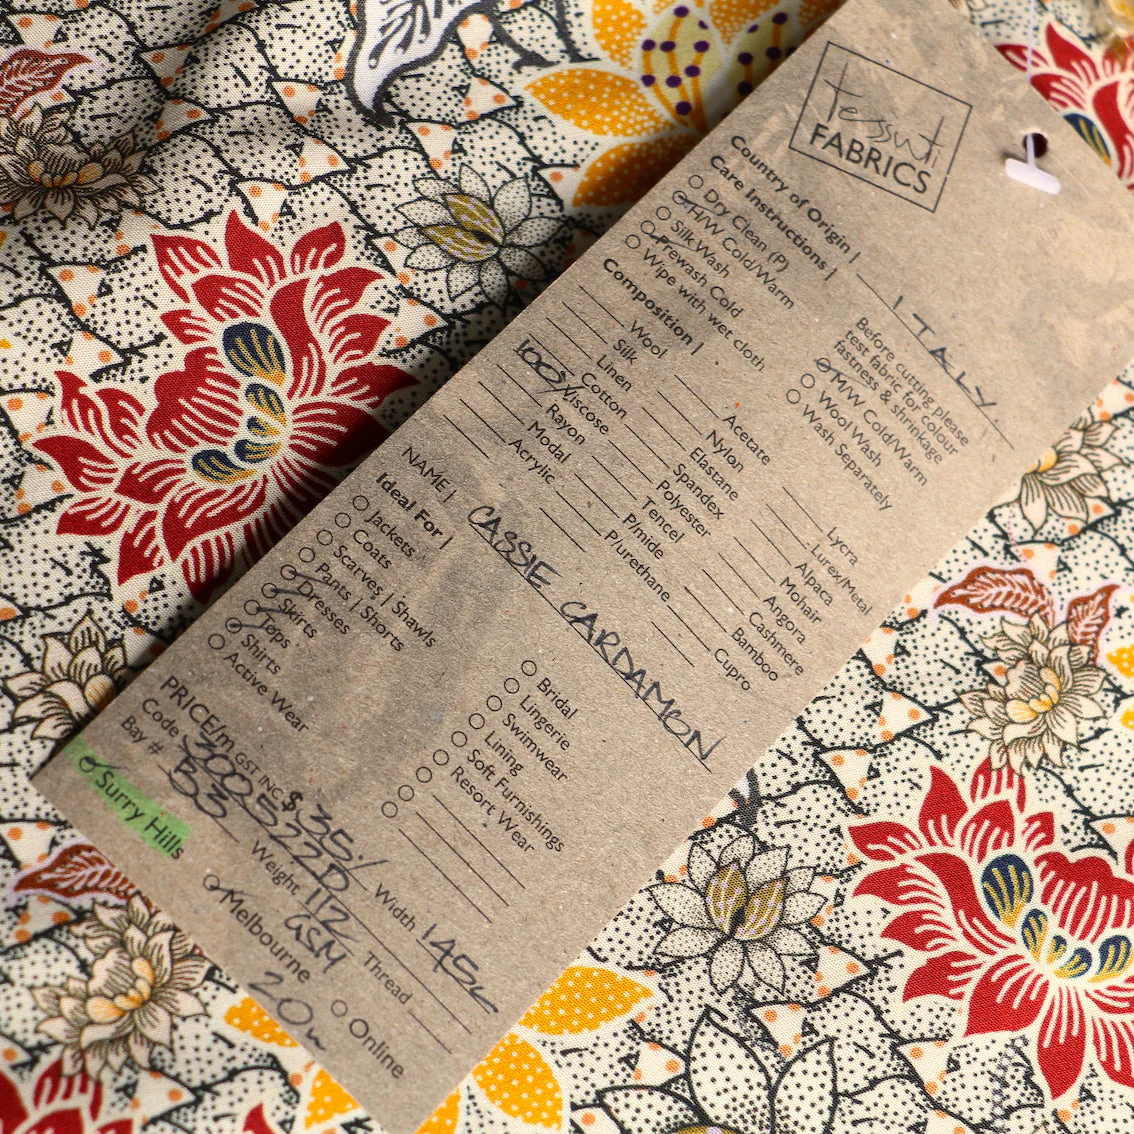 tessuti
FABRICS
Country of Origin | ITALY
Care Instructions |
Dry Clean (P)
H/W Cold/Warm
Silk Wash
Prewash Cold
Wipe with wet cloth
Before cutting please
test fabric for colour
fastness & shrinkage
M/W Cold/Warm
Wool Wash
Wash Separately
Composition |
Wool
Silk
Linen
100% Cotton
Viscose
Rayon
Modal
Acrylic
Acetate
Nylon
Elastane
Spandex
Polyester
Tencel
P/mide
P/urethane
Lycra
Lurex/Metal
Alpaca
Mohair
Angora
Cashmere
Bamboo
Cupro
NAME | CASSIE CARDAMON
Ideal For |
Jackets
Coats
Scarves | Shawls
Pants | Shorts
Dresses
Skirts
Tops
Shirts
Active Wear
Bridal
Lingerie
Swimwear
Lining
Soft Furnishings
Resort Wear
PRICE/m GST INC $ 35./ Width 145c
Code 300522D Weight 112 GSM Thread
Bay # B3
Surry Hills
Melbourne
20m
Online